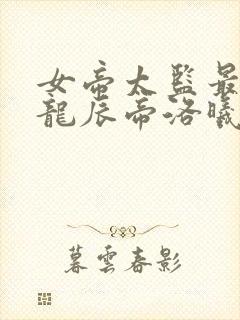 女帝太監最
龍辰帝洛曦
暮雲春影